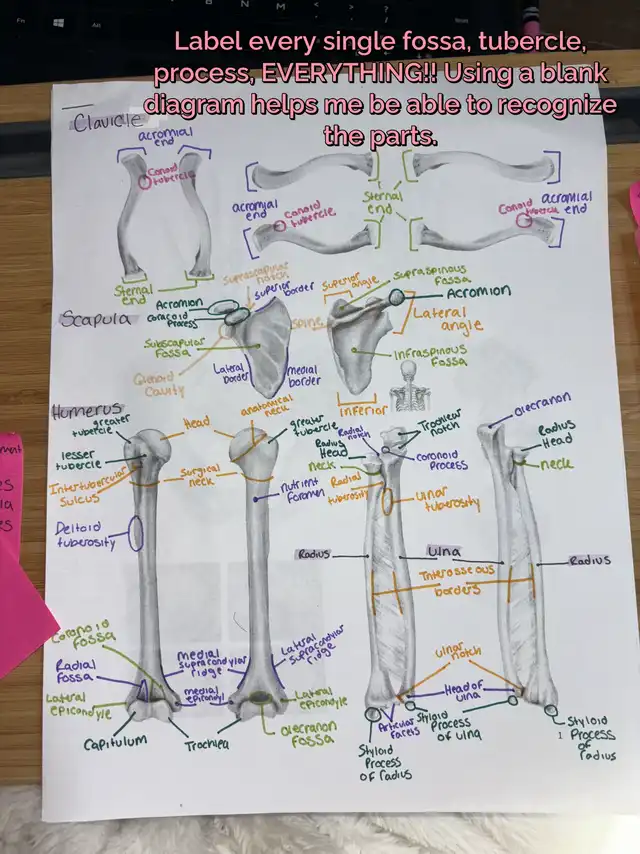 Label every single fossa, tubercle,
process, EVERYTHING!! Using a blank
diagram helps me be able to recognize
the parts.
Clavicle
acromial
end
Conoid
tubercle
Sternal
end
acromial
end
Conoid
tubercle
Sternal
end
Conoid
tubercle
acromial
end
Scapula
Acromion
coracoid
process
suprascapular
notch
superior
border
Subscapular
Fossa
Glenoid
cavity
Lateral
border
medial
border
superior
angle
supraspinous
Fossa
Acromion
spine
Lateral
angle
infraspinous
Fossa
inferior
Humerus
greater
tubercle
lesser
tubercle
Intertubercular
Sulcus
Deltoid
tuberosity
Head
anatomical
neck
Surgical
neck
greater
tubercle
nutrient
Foramen
Coronoid
Fossa
Radial
Fossa
Lateral
epicondyle
Capitulum
Trochlea
medial
supracondylar
ridge
medial
Lateral
supracondylar
ridge
Lateral
epicondyle
olecranon
Fossa
Radial
notch
Radius
Head
neck
Radial
tuberosity
Trochlear
notch
coronoid
Process
ulnar
tuberosity
olecranon
Radius
Head
neck
Radius
ulna
Radius
Interosseous
borders
ulnar
notch
Head of
ulna
Articular
facets
Styloid
Process
of ulna
Styloid
Process
of radius
Styloid
Process
of
radius